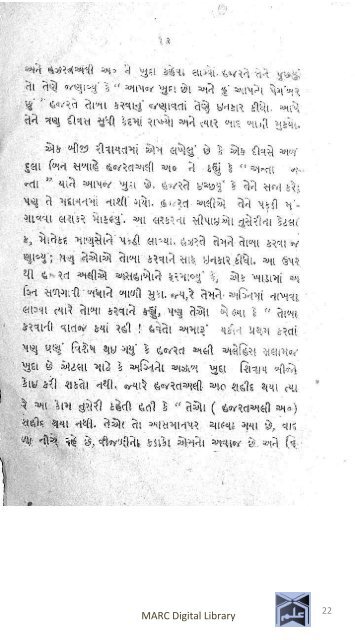 ૧૩
અને હઝરતઅલી અ૦ ને ખુદા કહેવા લાગ્યો. હજરતે તેને પુછ્યું
તો તેણે જણાવ્યું કે “ આપજ ખુદા છો અને હું આપનો પેગમ્બર
છું ” હજરતે તોબા કરવાનું જણાવતાં તેણે ઇનકાર કીધો. આપે
તેને ત્રણ દીવસ સુધી કેદમાં રાખ્યો અને ત્યાર બાદ બાળી મુક્યો.
એક બીજી રીવાયતમાં એમ લખેલું છે કે એક દીવસે અબ્
દુલા બિન સબાહે હજરતઅલી અ૦ ને કહ્યું કે “ અન્તા અ
ન્તા ” યાને આપજ ખુદા છો. હજરતે ઇચ્છયું કે તેને સજા કરે;
પણુ તે મદાયનમાં નાશી ગયો. હઝરત અલીએ તેને પકડી મં-
ગાવવા લશકર મોકલ્યું. આ લશ્કરના સીપાઇઓ નુસેરીના કેટલા
ક, મોતેકદ માણસોને પકડી લાવ્યા. હઝરતે તેમને તોબા કરવા જ
ણાવ્યું; પણ તેઓએ તોબા કરવાને સાફ ઇનકાર કીધો. આ ઉપર
થી હઝરત અલીએ અસહાબોને ફરમાવ્યું કે, એક ખાડામાં અ
ગ્નિ સળગાવી બધાને બાળી મુકો. જ્યારે તેમને અગ્નિમાં નાખવા
લાગ્યા ત્યારે તોબા કરવાને કહ્યું, પણ તેઓ બોલ્યા કે “ તોબા
કરવાની વાતજ ક્યાં રહી ! હવેતો અમારૂં યકીન પ્રથમ કરતાં
પણ ઘણું વિશેષ થઇ ગયું કે હજરત અલી અલેહિસ સલામજ
ખુદા છે એટલા માટે કે અગ્નિનો અઝાબ ખુદા સિવાય બીજો
કોઇ કરી શકતો નથી. જ્યારે હજરતઅલી અ૦ શહીદ થયા ત્યા
રે આ કોમ નુસેરી કહેતી હતી કે “ તેઓ ( હજરતઅલી અ૦)
શહીદ થયા નથી. તેઓ તો આસમાનપર ચાલ્યા ગયા છે, વાદ
ળા નીચે રહે છે, વીજળીનો કડાકો એમનો અવાજ છે અને વિ
MARC Digital Library
22